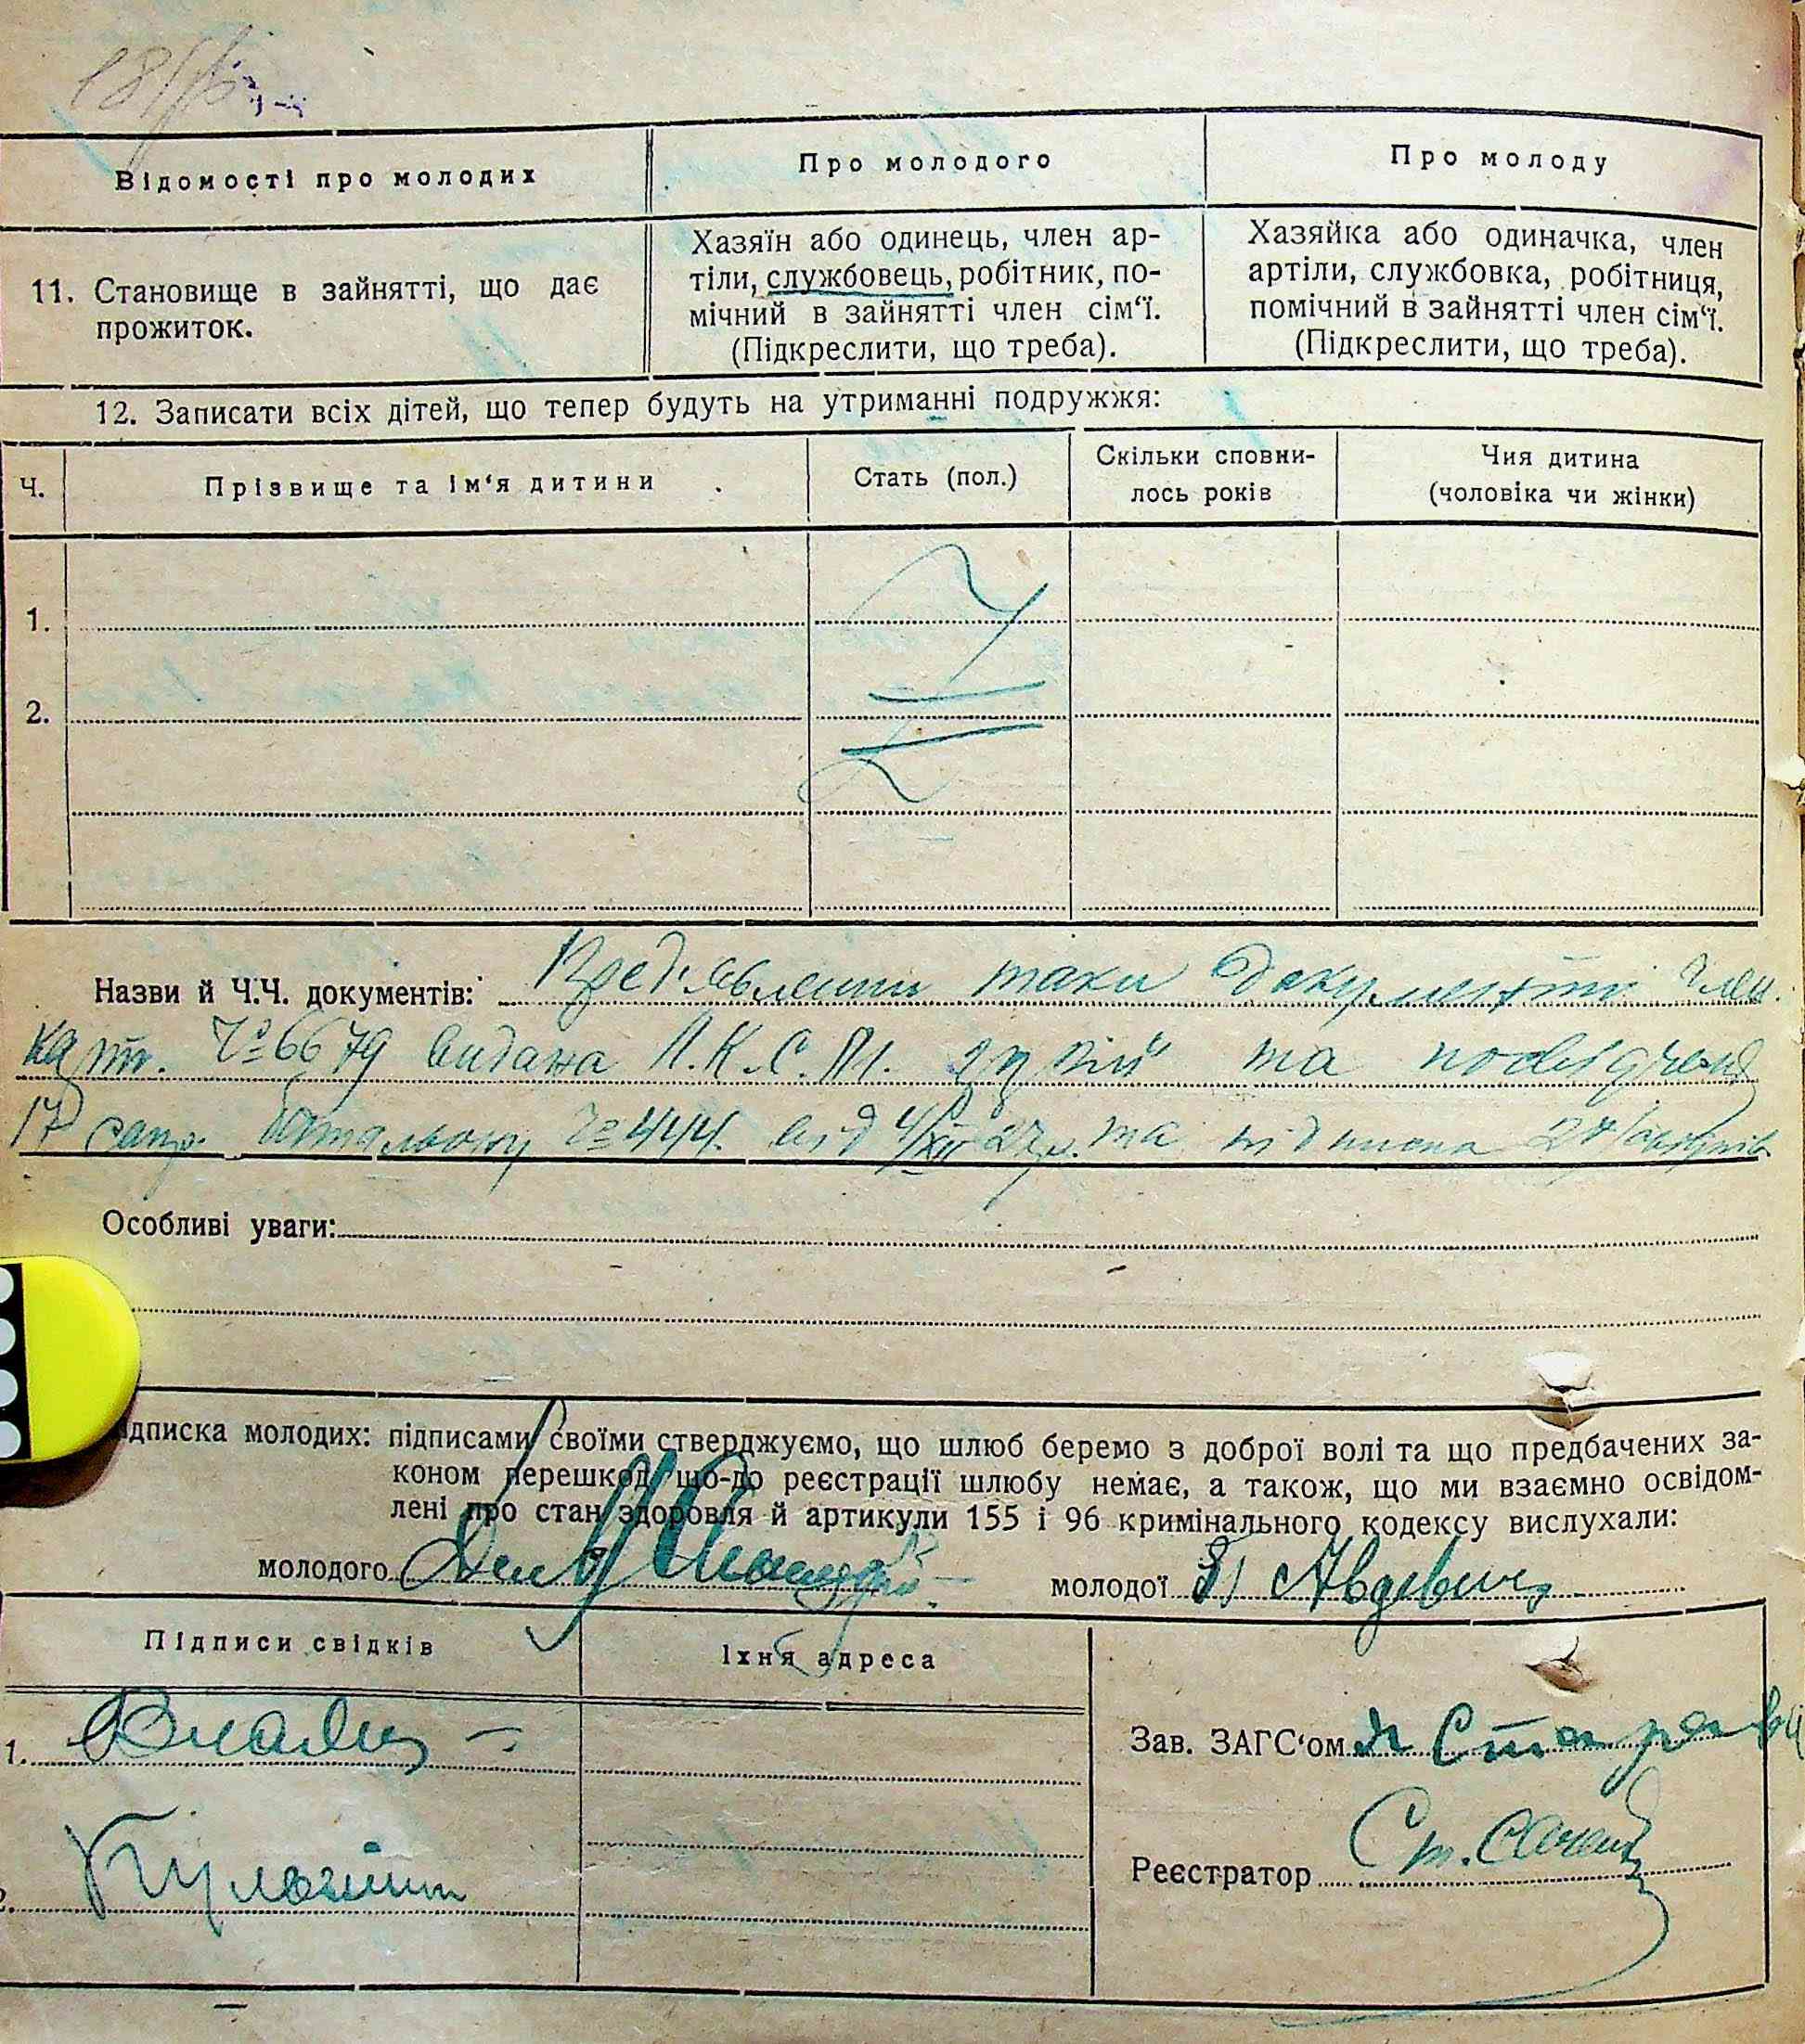 Відомості про молодих
Про молодого
Про молоду
11. Становище в зайнятті, що дає
прожиток.
Хазяїн або одинець, член ар-
тіли, службовець, робітник, по-
мічний в зайнятті член сім‘ї.
(Підкреслити, що треба).
Хазяйка або одиначка, член
артіли, службовка, робітниця,
помічний в зайнятті член сім‘ї.
(Підкреслити, що треба).
12. Записати всіх дітей, що тепер будуть на утриманні подружжя:
Ч.
Прізвище та ім‘я дитини
Стать (пол.)
Скільки сповни-
лось років
Чия дитина
(чоловіка чи жінки)
1.
2.
Назви й Ч.Ч. документів: таки документи член.
карт. № 6679 видана та
17 сапр. батальону № 444 від 4/XII 27р. та підписка
Особливі уваги:
дписка молодих: підписами своїми стверджуємо, що шлюб беремо з доброї волі та що предбачених за-
коном перешкод що-до реєстрації шлюбу немає, а також, що ми взаємно освідом-
лені про стан здоровля й артикули 155 і 96 кримінального кодексу вислухали:
молодого
молодої
Підписи свідків
Їхня адреса
1.
2.
Зав. ЗАГС‘ом
Реєстратор